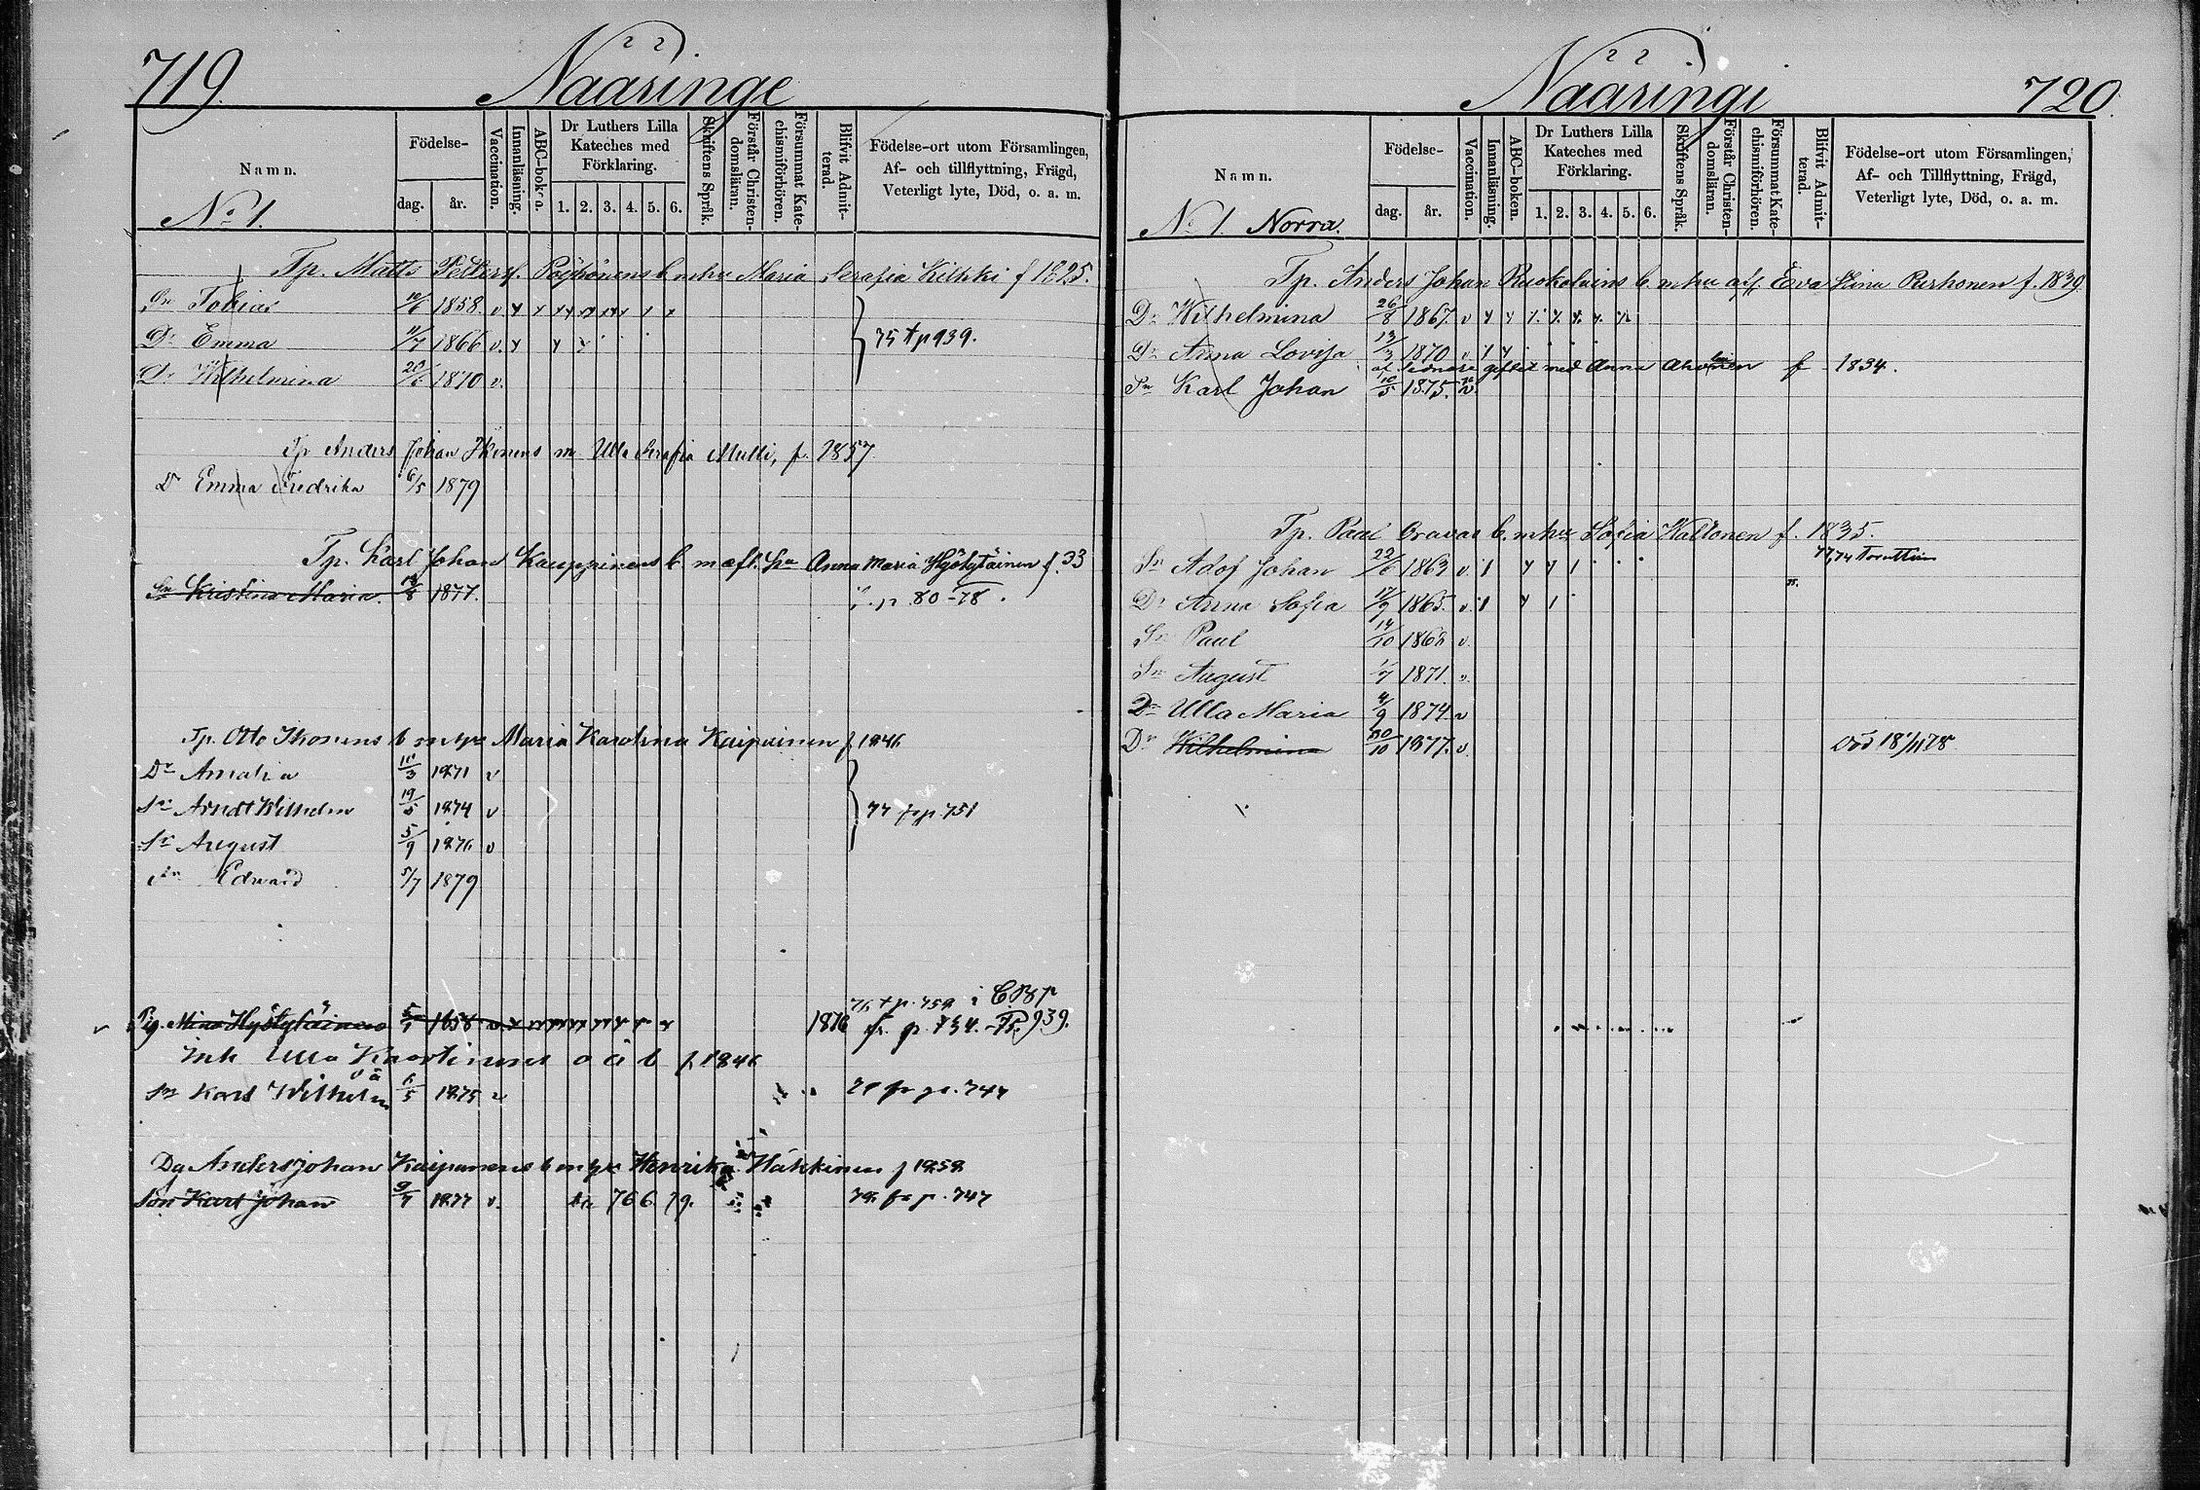 719.
Nääringe
Namn.
Födelse-
dag.
år.
Vaccination.
Innanläsning.
ABC-boken.
Dr Luthers Lilla
Kateches med
Förklaring.
1. 2. 3. 4. 5. 6.
Skriftens Språk.
Förstår Christen-
domsläran.
Försummat Kate-
chismiförhören.
Blifvit Admit-
terad.
Födelse-ort utom Församlingen,
Af- och tillflyttning, Frägd,
Veterligt lyte, Död, o. a. m.
No 1.
Tp. Matts Petterss. b. m hu Maria Serafia Kilkki f 1825.
Sn Tobias 1858. v
Dr Emma 11/7 1866 v. 75 † p 939.
Dr Wilhelmina 20/6 1870 v.
Tp Anders Johan Ikonens m Ulla Serafia Multi, f. 1857
Dr Emma Fredrika 6/5 1879
Tp. Karl Johan Kauppinens b m Anna Maria Hyötyläinen f. 33
Kristina Maria. 1877. p 80-78.
Tp. Otto Ikonens b m hu Maria Karolina Kaipainen f 1846
Dr Amalia 1871 v
Sn Arndt Wilhelm 19/5 1874 v 77 fr p. 751
Sn August 5/9 1876 v
Sn Edward 5/7 1879
76 † p. 759 i CB p
Pig. Mina Hyötyläinen 5/1 1858 v 1876 fr. p. 734. 939.
Inh Ulla o ä b f. 1846
o ä
Sn Karl Wilhelm 6/5 1875 v fr p. 747
Dg Anders Johan Kaipanens b m hu Henrika Häkkinen f 1852
Son Karl Johan 9/7 1877 v. 766 79. 78 fr p. 747
Nääringi
720.
Namn.
Födelse-
dag.
år.
Vaccination.
Innanläsning.
ABC-boken.
Dr Luthers Lilla
Kateches med
Förklaring.
1. 2. 3. 4. 5. 6.
Skriftens Språk.
Förstår Christen-
domsläran.
Försummat Kate-
chismiförhören.
Blifvit Admit-
terad.
Födelse-ort utom Församlingen,
Af- och Tillflyttning, Frägd,
Veterligt lyte, Död, o. a. m.
No 1. Norra.
Tp. Anders Johan Ruokolains b. m hu afl. Eva Stina Purhonen f. 1839
Dr Wilhelmina 26/8 1867. v
Dr Anna Lovisa 13/3 1870 v
af Sednare giftet med Anna f 1834.
Sn Karl Johan 10/5 1875. v
Tp. Paul Oravas b. m hu Sofia Hattonen f. 1835.
Sn Adof Johan 22/6 1863 v
Dr Anna Sofia 17/9 1865. v
Sn Paul 14/10 1868 v
Sn August 1871. v.
Dr Ulla Maria 4/9 1874 v
Dr Wilhelmina 30/10 1877. v Död 18 78